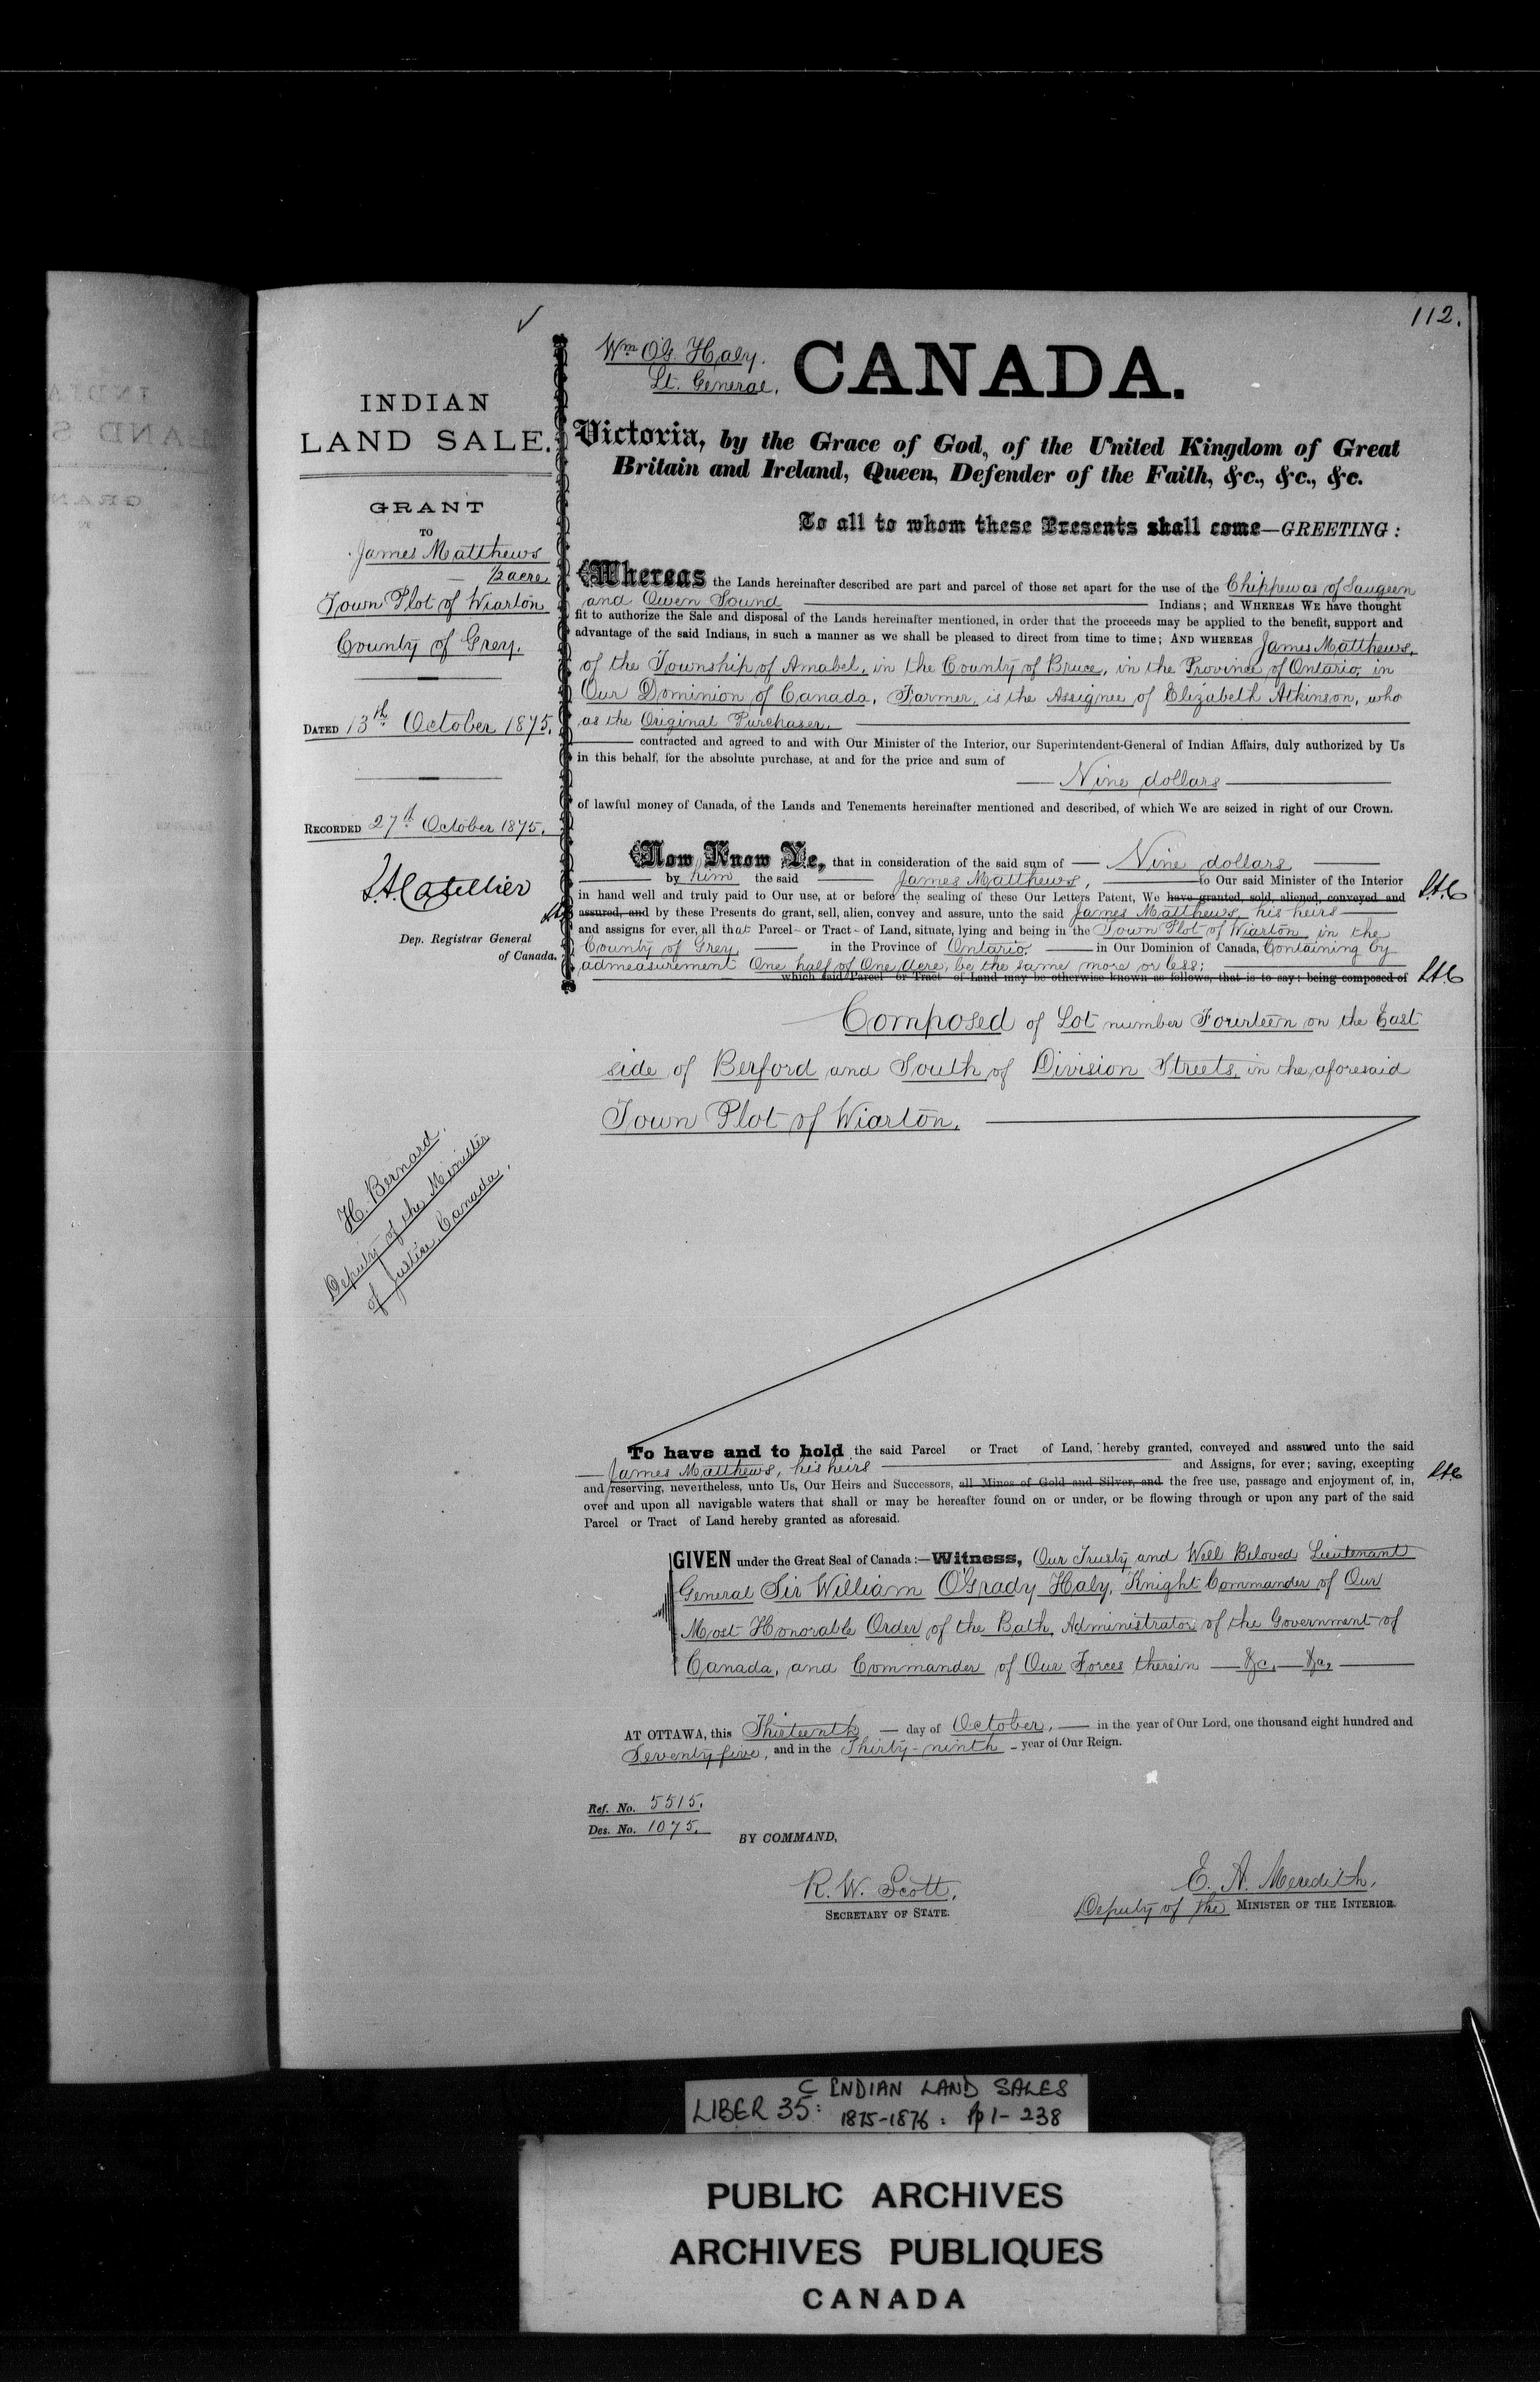 112.
Wm O'G. Haly.
Lt. General.
CANADA.
INDIAN
LAND SALE.
GRANT
TO
James Matthews
1/2 acre
Town Plot of Wiarton
County of Grey.
DATED 13th October 1875.
RECORDED 27th October 1875.
L.A. Catellier
Dep. Registrar General
of Canada.
H. Bernard.
Deputy of the Minister
of Justice, Canada.
Victoria, by the Grace of God, of the United Kingdom of Great
Britain and Ireland, Queen, Defender of the Faith, &c., &c., &c.
To all to whom these Presents shall come—GREETING:
Whereas the Lands hereinafter described are part and parcel of those set apart for the use of the Chippewas of Saugeen
and Owen Sound Indians; and WHEREAS WE have thought
fit to authorize the Sale and disposal of the Lands hereinafter mentioned, in order that the proceeds may be applied to the benefit, support and
advantage of the said Indians, in such a manner as we shall be pleased to direct from time to time; AND WHEREAS James Matthews,
of the Township of Amabel, in the County of Bruce, in the Province of Ontario, in
Our Dominion of Canada, Farmer, is the Assignee of Elizabeth Atkinson, who
as the Original Purchaser,
contracted and agreed to and with Our Minister of the Interior, our Superintendent-General of Indian Affairs, duly authorized by Us
in this behalf, for the absolute purchase, at and for the price and sum of
Nine dollars
of lawful money of Canada, of the Lands and Tenements hereinafter mentioned and described, of which We are seized in right of our Crown.
Now Know Ye, that in consideration of the said sum of Nine dollars
by him the said James Matthews, to Our said Minister of the Interior
in hand well and truly paid to Our use, at or before the sealing of these Our Letters Patent, We have granted, sold, aliened, conveyed and LAC
assured, and by these Presents do grant, sell, alien, convey and assure, unto the said James Matthews, his heirs
and assigns for ever, all that Parcel or Tract of Land, situate, lying and being in the Town Plot of Wiarton in the
County of Grey in the Province of Ontario in Our Dominion of Canada, Containing by
admeasurement One half of One Acre, be the same more or less;
which said Parcel or Tract of Land may be otherwise known as follows, that is to say: being composed of LAC
Composed of Lot number Fourteen on the East
side of Berford and South of Division Streets, in the aforesaid
Town Plot of Wiarton.
To have and to hold the said Parcel or Tract of Land, hereby granted, conveyed and assured unto the said
James Matthews, his heirs and Assigns, for ever; saving, excepting
and reserving, nevertheless, unto Us, Our Heirs and Successors, all Mines of Gold and Silver, and the free use, passage and enjoyment of, in, LAC
over and upon all navigable waters that shall or may be hereafter found on or under, or be flowing through or upon any part of the said
Parcel or Tract of Land hereby granted as aforesaid.
GIVEN under the Great Seal of Canada:—Witness, Our Trusty and Well Beloved Lieutenant
General Sir William O'Grady Haly, Knight Commander of Our
Most Honorable Order of the Bath, Administrator of the Government of
Canada, and Commander of Our Forces therein &c. &c.
AT OTTAWA, this Thirteenth day of October, in the year of Our Lord, one thousand eight hundred and
Seventy-five, and in the Thirty-ninth year of Our Reign.
Ref. No. 5515.
Des. No. 1075.
BY COMMAND,
R. W. Scott,
SECRETARY OF STATE.
E. A. Meredith,
Deputy of the MINISTER OF THE INTERIOR.
C INDIAN LAND SALES
LIBER 35: 1875-1876: pp 1-238
PUBLIC ARCHIVES
ARCHIVES PUBLIQUES
CANADA